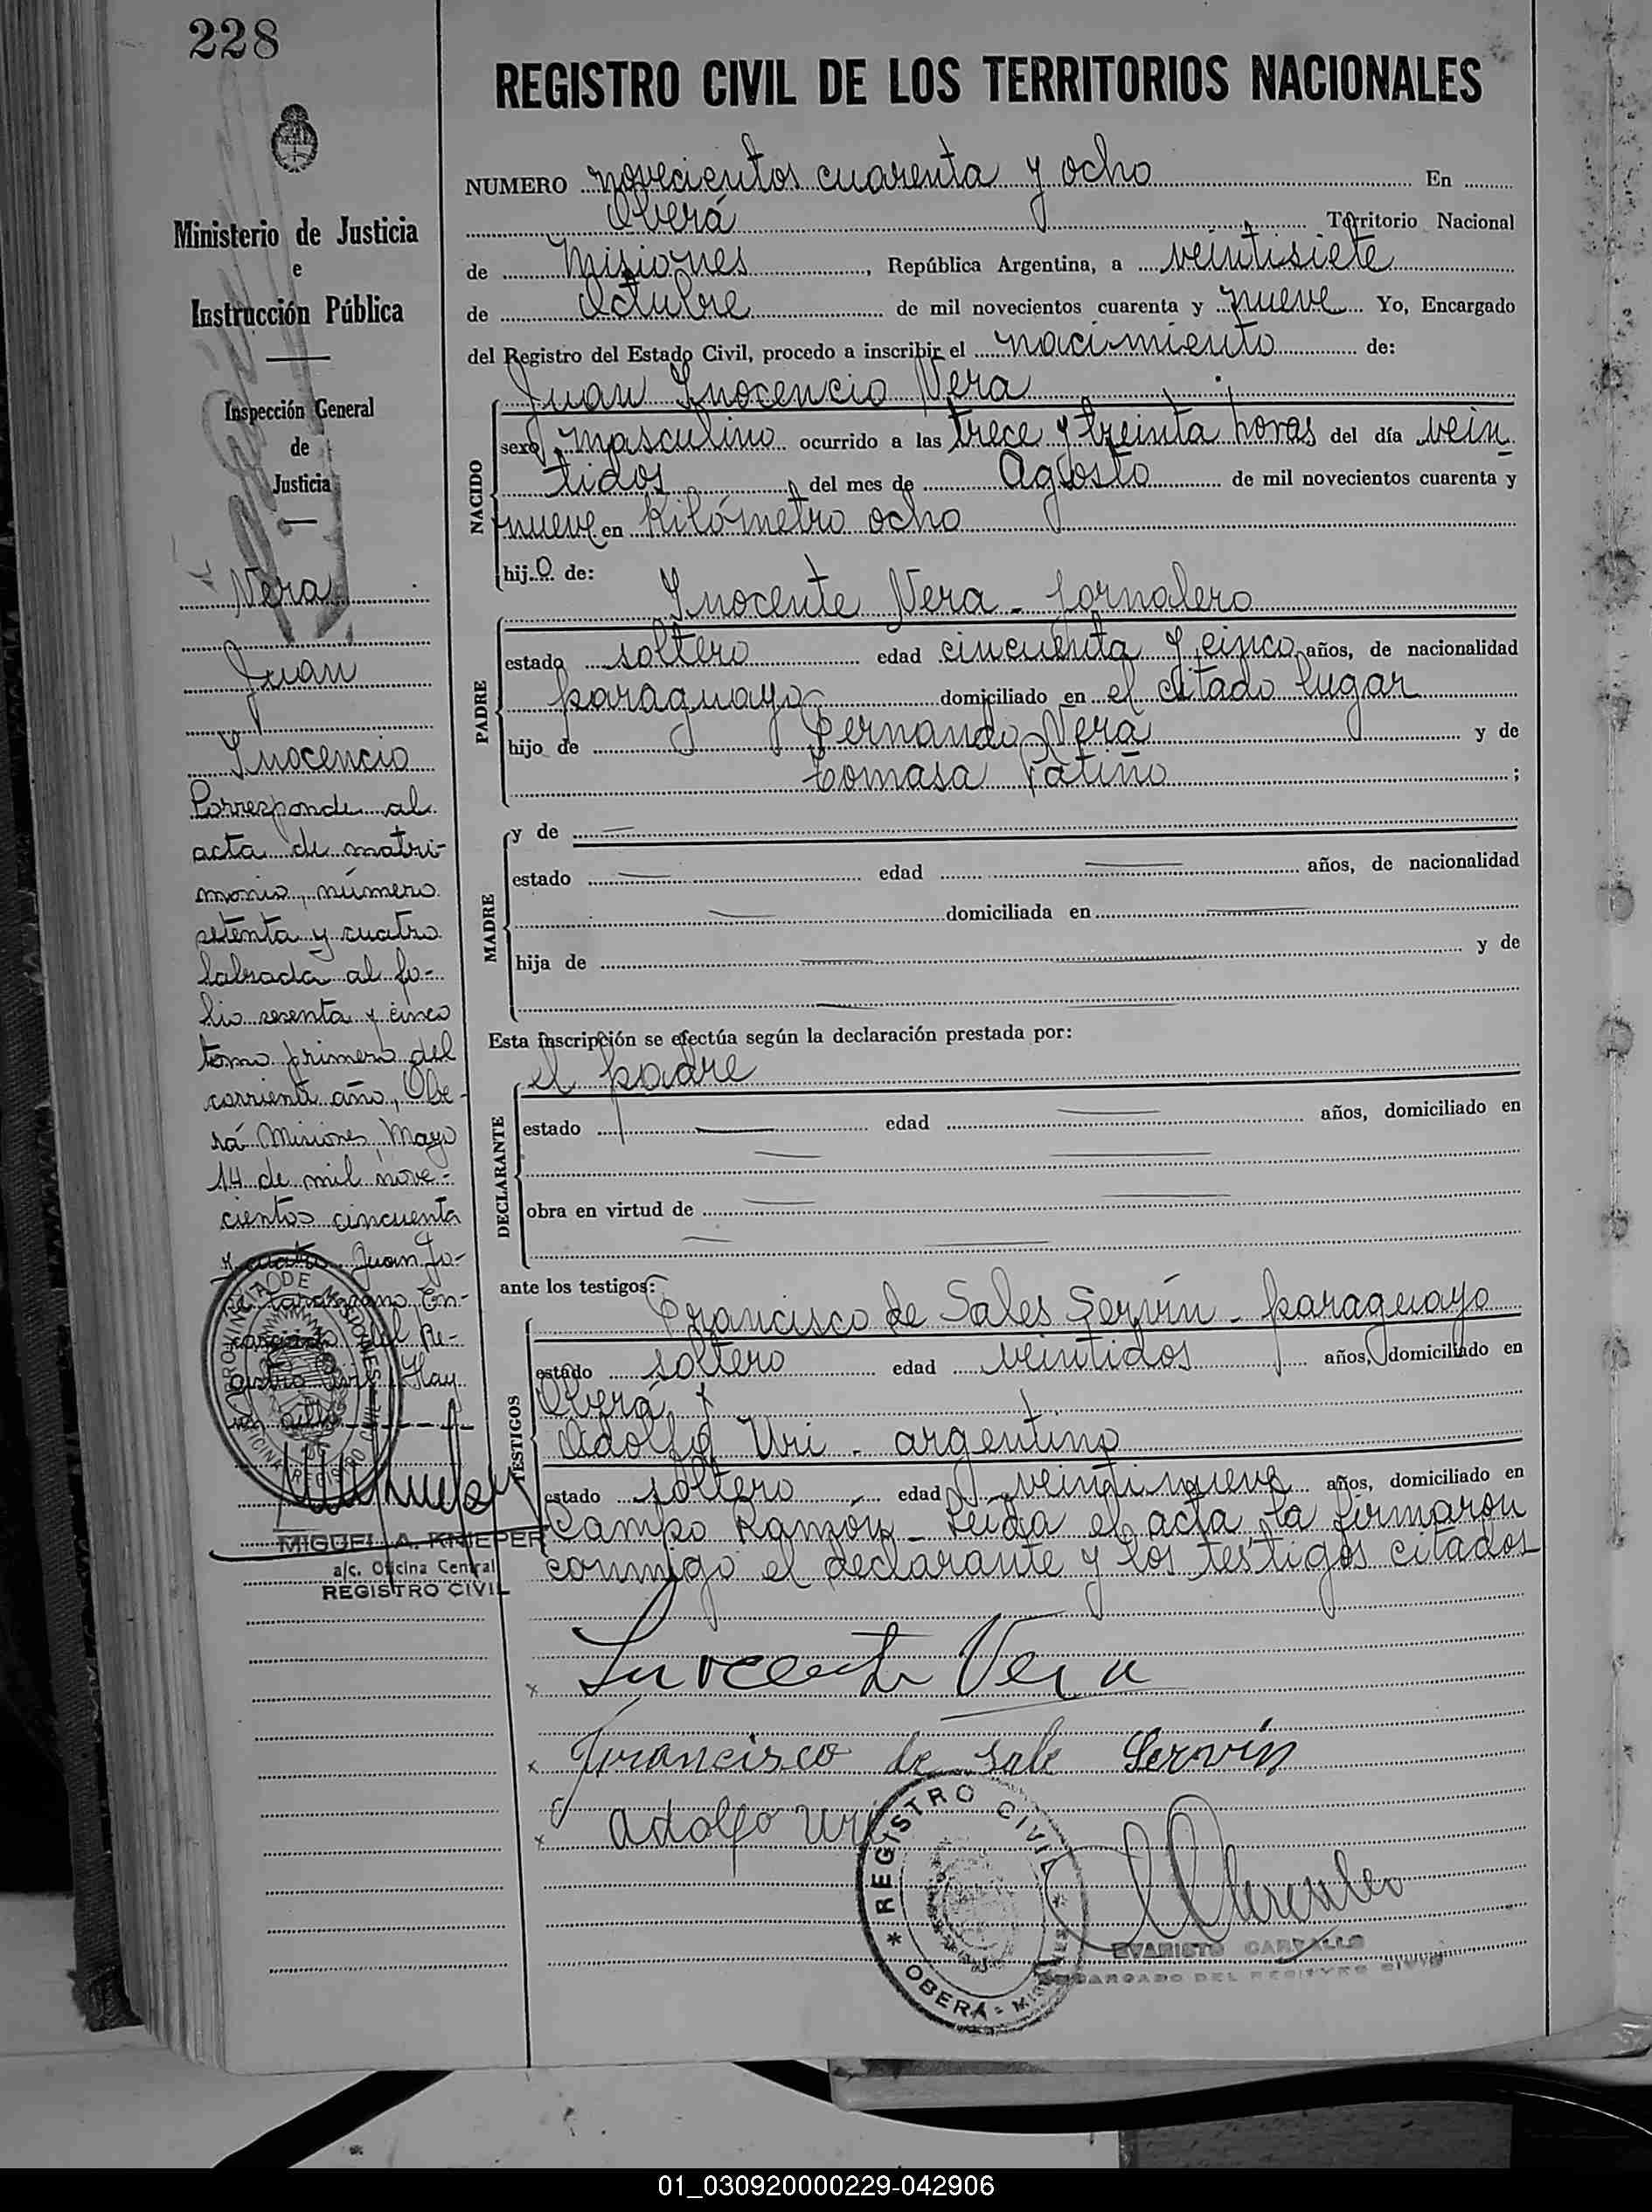 228
REGISTRO CIVIL DE LOS TERRITORIOS NACIONALES
Ministerio de Justicia
e
Instrucción Pública
Inspección General
de
Justicia
Vera
Juan
Inocencio
Corresponde al
acta de matri-
monio, número
setenta y cuatro
labrada al fo-
lio sesenta y cinco
tomo primero del
corriente año, Obe-
rá Misiones, Mayo
14 de mil nove-
cientos cincuenta
y cuatro Juan Jo-
En-
del Re-
Hay
un sello
MIGUEL A. KNIEPER
a/c. Oficina Central
REGISTRO CIVIL
NUMERO novecientos cuarenta y ocho En
Oberá Territorio Nacional
de Misiones, República Argentina, a veintisiete
de Octubre de mil novecientos cuarenta y nueve Yo, Encargado
del Registro del Estado Civil, procedo a inscribir el nacimiento de:
Juan Inocencio Vera
NACIDO
sexo masculino ocurrido a las trece y treinta horas del día vein
tidos del mes de Agosto de mil novecientos cuarenta y
nueve en Kilómetro ocho
hijo de:
Inocente Vera - jornalero
PADRE
estado soltero edad cincuenta y cinco años, de nacionalidad
paraguayo domiciliado en el citado lugar
hijo de Fernando Vera y de
Tomasa Patiño ;
MADRE
y de
estado edad años, de nacionalidad
domiciliada en
hija de y de
Esta inscripción se efectúa según la declaración prestada por:
el padre
DECLARANTE
estado edad años, domiciliado en
obra en virtud de
ante los testigos:
Francisco de Sales Servín - paraguayo
TESTIGOS
estado soltero edad veintidos años, domiciliado en
Oberá y
Adolfo Uri - argentino
estado soltero edad veintinueve años, domiciliado en
Campo Ramón - Leída el acta la firmaron
conmigo el declarante y los testigos citados
Inocente Vera
Francisco de Sale Servín
Adolfo Uri
REGISTRO CIVIL
OBERÁ - MISIONES
EVARISTO CARVALLO
ENCARGADO DEL REGISTRO CIVIL
01_030920000229-042906